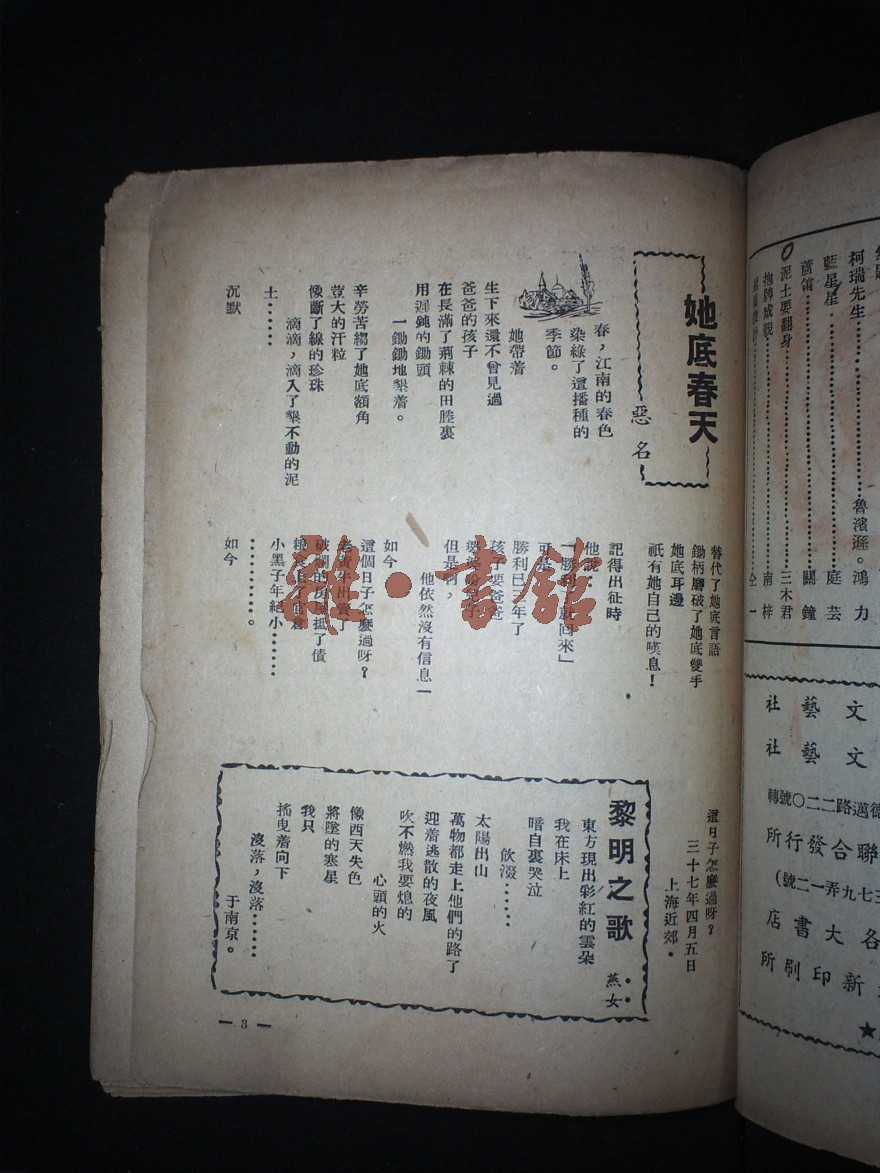 她底春天
惡名
春，江南的春色
染綠了這播種的
季節。
她帶着
生下來還不曾見過
爸爸的孩子
在長滿了荆棘的田塍裏
用遲鈍的鋤頭
一鋤鋤地墾着。
辛勞苦縐了她底額角
荳大的汗粒
像斷了線的珍珠
滴滴，滴入了墾不動的泥
土……
沉默
替代了她底言語
鋤柄磨破了她底雙手
她底耳邊
祇有她自己的嘆息！
記得出征時
他說：
「勝利，就回來」
可是
勝利已三年了
孩子要爸爸
婆婆盼兒子
但是啊，
他依然沒有信息—
如今
這個日子怎麼過呀？
老黃牛出賣了
破爛的房屋抵了債
糧食上了官倉
小黑子年紀小………
…………。
如今
這日子怎麼過呀？
三十七年四月五日
上海近郊．
黎明之歌
燕女
東方現出彩紅的雲朵
我在床上
暗自裏哭泣
飲淚……
太陽出山
萬物都走上他們的路了
迎着逃散的夜風
吹不燃我要熄的
心頭的火
像西天失色
將墜的寒星
我只
搖曳着向下
沒落，沒落……
于南京。
— 3 —
雅·書館
柯瑞先生
魯濱遜。鴻力
藍星星
庭芸
蘆笛
關鐘
泥土要翻身
三木君
抱歸成親
南梓
全一
文藝社
文藝社
德邁路二二〇號轉
聯合發行所
三七九弄一二號）
各大書店
新印刷所
★